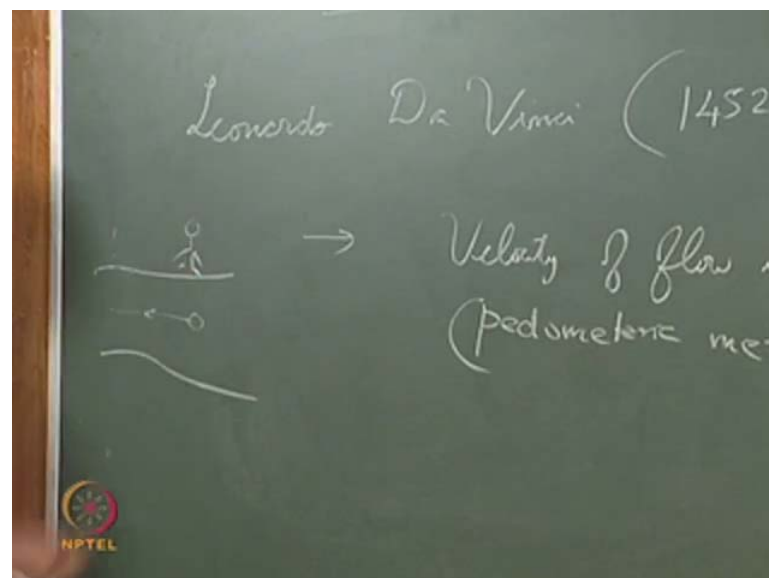 Leonardo Da Vinci (1452
→ Velocity of flow
(pedometeric me
NPTEL